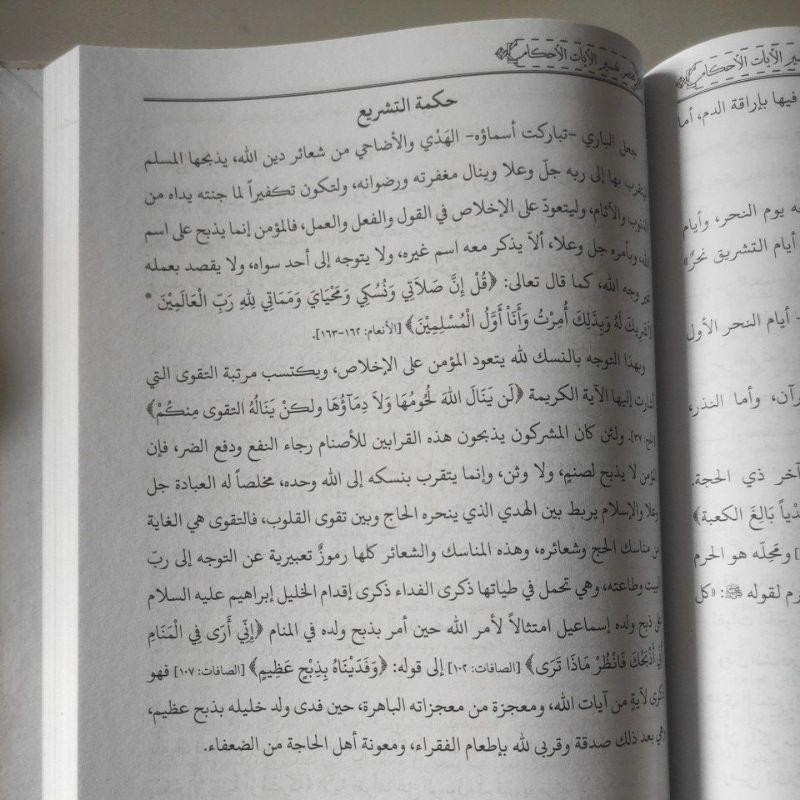 مختصر تفسير الآيات الأحكام
حكمة التشريع
جعل الباري -تباركت أسماؤه- الهَدْي والأضاحي من شعائر دين الله، يذبحها المسلم
ليتقرب بها إلى ربه جلّ وعلا وينال مغفرته ورضوانه، ولتكون تكفيراً لما جنته يداه من
الذنوب والآثام، وليتعودّ على الإخلاص في القول والفعل والعمل، فالمؤمن إنما يذبح على اسم
الله، ويأمره جل وعلا، ألاّ يذكر معه اسم غيره، ولا يتوجه إلى أحد سواه، ولا يقصد بعمله
غير وجه الله، كما قال تعالى: ﴿قُلْ إِنَّ صَلَاتِي وَنُسُكِي وَمَحْيَايَ وَمَمَاتِي لِلهِ رَبِّ الْعَالَمِيْنَ *
لاَ شَرِيكَ لَهُ وَبِذَلِكَ أُمِرْتُ وَأَنَاْ أَوَّلُ الْمُسْلِمِيْنَ﴾ [الأنعام: ١٦٢-١٦٣].
وبهذا التوجه بالنسك لله يتعود المؤمن على الإخلاص، ويكتسب مرتبة التقوى التي
أشارت إليها الآية الكريمة ﴿لَن يَنَالَ اللهَ لُحُومُهَا وَلاَ دِمَآؤُهَا ولكنْ يَنَالُهُ التقوى مِنكُمْ﴾
[الحج: ٣٧]. ولئن كان المشركون يذبحون هذه القرابين للأصنام رجاء النفع ودفع الضر، فإن
المؤمن لا يذبح لصنمٍ، ولا وثن، وإنما يتقرب بنسكه إلى الله وحده، مخلصاً له العبادة جل
وعلا والإسلام يربط بين الهدي الذي ينحره الحاج وبين تقوى القلوب، فالتقوى هي الغاية
من مناسك الحج وشعائره، وهذه المناسك والشعائر كلها رموزٌ تعبيرية عن التوجه إلى ربّ
البيت وطاعته، وهي تحمل في طياتها ذكرى الفداء ذكرى إقدام الخليل إبراهيم عليه السلام
على ذبح ولده إسماعيل امتثالاً لأمر الله حين أمر بذبح ولده في المنام ﴿إِنِّي أَرَى فِي الْمَنَامِ
أَنِّي أَذْبَحُكَ فَانْظُرْ مَاذَا تَرَى﴾ [الصافات: ١٠٢] إلى قوله: ﴿وَفَدَيْنَاهُ بِذِبْحٍ عَظِيمٍ﴾ [الصافات: ١٠٧] فهو
ذكرى لآيةٍ من آيات الله، ومعجزة من معجزاته الباهرة، حين فدى ولد خليله بذبح عظيم،
وهي بعد ذلك صدقة وقربى لله بإطعام الفقراء، ومعونة أهل الحاجة من الضعفاء.
تفسير الآيات الأحكام
فيها بإراقة الدم، أما
يوم النحر، وأيام
أيام التشريق نحرٌ»
- أيام النحر الأول
وأما النذر،
آخر ذي الحجة.
بَالِغَ الكعبة﴾
ومَحِلّه هو الحرم
لقوله ﷺ: «كل